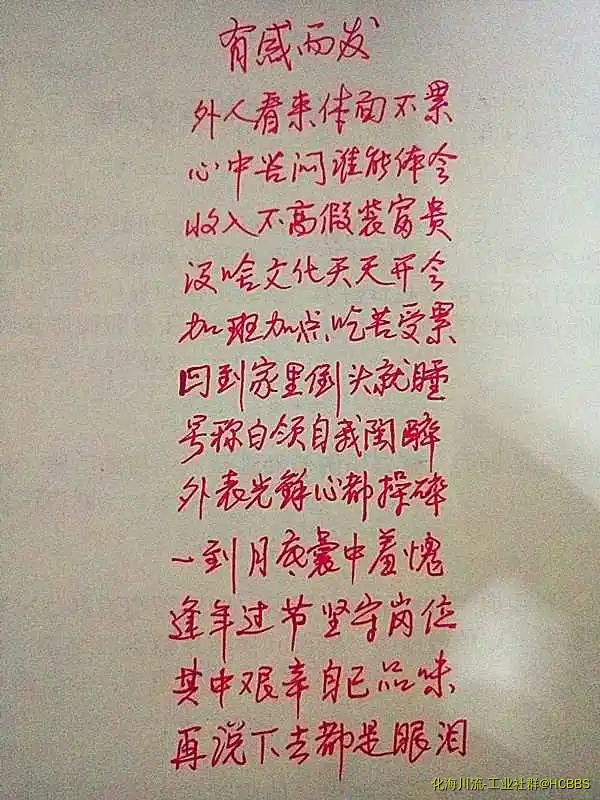 有感而发
外人看来体面不累
心中苦闷谁能体会
收入不高假装富贵
没啥文化天天开会
加班加点吃苦受累
回到家里倒头就睡
号称白领自我陶醉
外表光鲜心都操碎
一到月底囊中羞愧
逢年过节坚守岗位
其中艰辛自己品味
再说下去都是眼泪
化海川流-工业社群@HCBBS